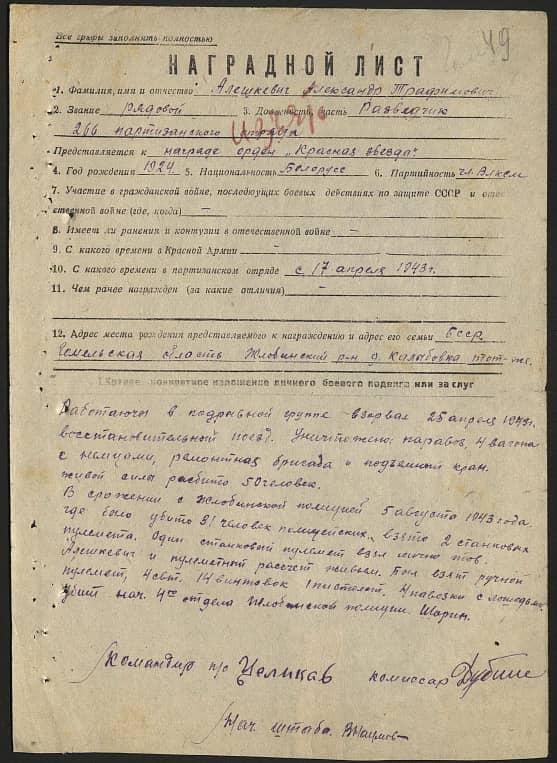 Все графы заполнять полностью
49
НАГРАДНОЙ ЛИСТ
1. Фамилия, имя и отчество Алешкевич Александр Трафимович
2. Звание рядовой 3. Должность, часть Разведчик
266 партизанского отряда
Представляется к награде орден „Красная звезда"
4. Год рождения 1924 5. Национальность Белорусс 6. Партийность чл. Влксм
7. Участие в гражданской войне, последующих боевых действиях по защите СССР и отечественной войне (где, когда) —
8. Имеет ли ранения и контузии в отечественной войне —
9. С какого времени в Красной Армии —
10. С какого времени в партизанском отряде с 17 апреля 1943г.
11. Чем ранее награжден (за какие отличия) —
12. Адрес места рождения представляемого к награждению и адрес его семьи БССР
Гомельская область Жловинский р-н д. Калыбовка тот-же.
I. Краткое, конкретное изложение личного боевого подвига или заслуг
Работаючы в подрывной группе взорвал 25 апреля 1943г.
восстановительный поезд. Уничтожено: паравоз, 4 вагона
с немцами, ремонтная бригада и подъемный кран.
живой силы разбито 50 человек.
В сражении с Жлобинской полицией 5 августа 1943 года.
где было убито 31 человек полицейских, взято 2 станковых
пулемета. Один станковый пулемет взял лично тов.
Алешкевич и пулеметный рассчет живьем. Был взят ручной
пулемет, 4 свт. 14 винтовок 1 пистолет. 4 павозки с лошадьми
убит нач. 4го отдела Жлобинской полиции Шарин.
Командир п/о Целикав комиссар
Нач. штаба